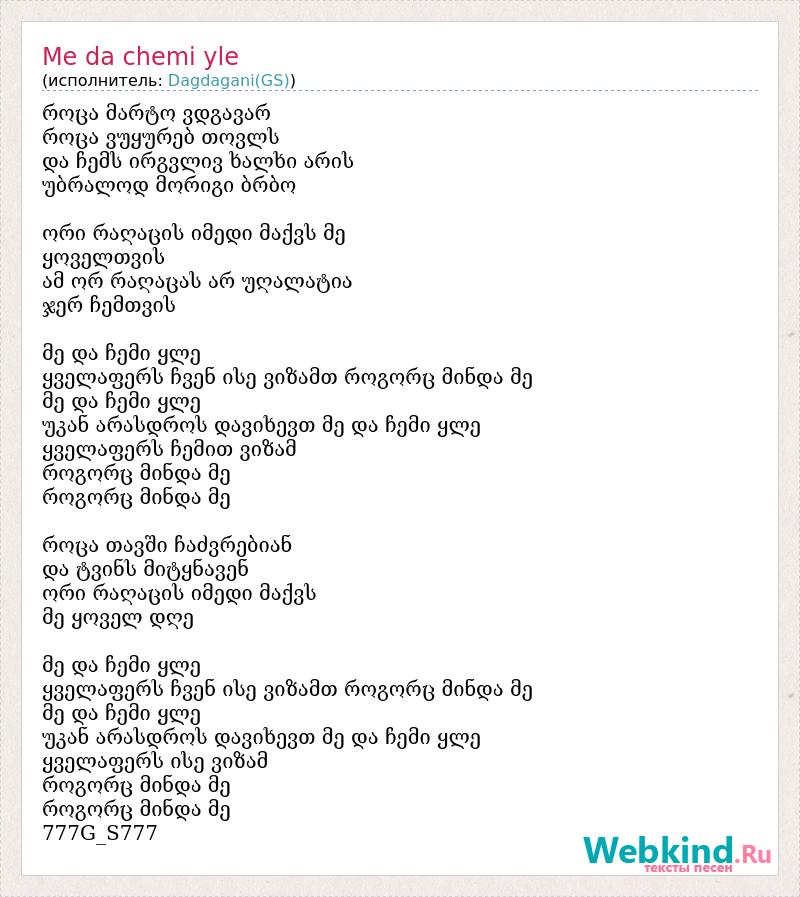 Me da chemi yle
(исполнитель: Dagdagani(GS))
როცა მარტო ვდგავარ
როცა ვუყურებ თოვლს
და ჩემს ირგვლივ ხალხი არის
უბრალოდ მორიგი ბრბო
ორი რაღაცის იმედი მაქვს მე
ყოველთვის
ამ ორ რაღაცას არ უღალატია
ჯერ ჩემთვის
მე და ჩემი ყლე
ყველაფერს ჩვენ ისე ვიზამთ როგორც მინდა მე
მე და ჩემი ყლე
უკან არასდროს დავიხევთ მე და ჩემი ყლე
ყველაფერს ჩემით ვიზამ
როგორც მინდა მე
როგორც მინდა მე
როცა თავში ჩაძვრებიან
და ტვინს მიტყნავენ
ორი რაღაცის იმედი მაქვს
მე ყოველ დღე
მე და ჩემი ყლე
ყველაფერს ჩვენ ისე ვიზამთ როგორც მინდა მე
მე და ჩემი ყლე
უკან არასდროს დავიხევთ მე და ჩემი ყლე
ყველაფერს ისე ვიზამ
როგორც მინდა მე
როგორც მინდა მე
777G_S777
Webkind.Ru
тексты песен